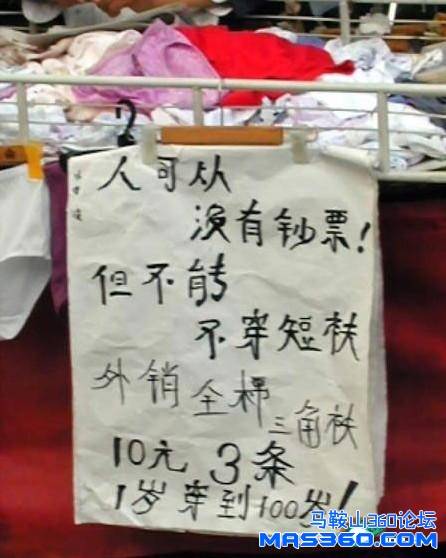 人可从
没有钞票!
但不能
不穿短衭
外销全棉三角衭
10元 3条
1岁穿到100岁!
马鞍山360论坛
MAS360.COM